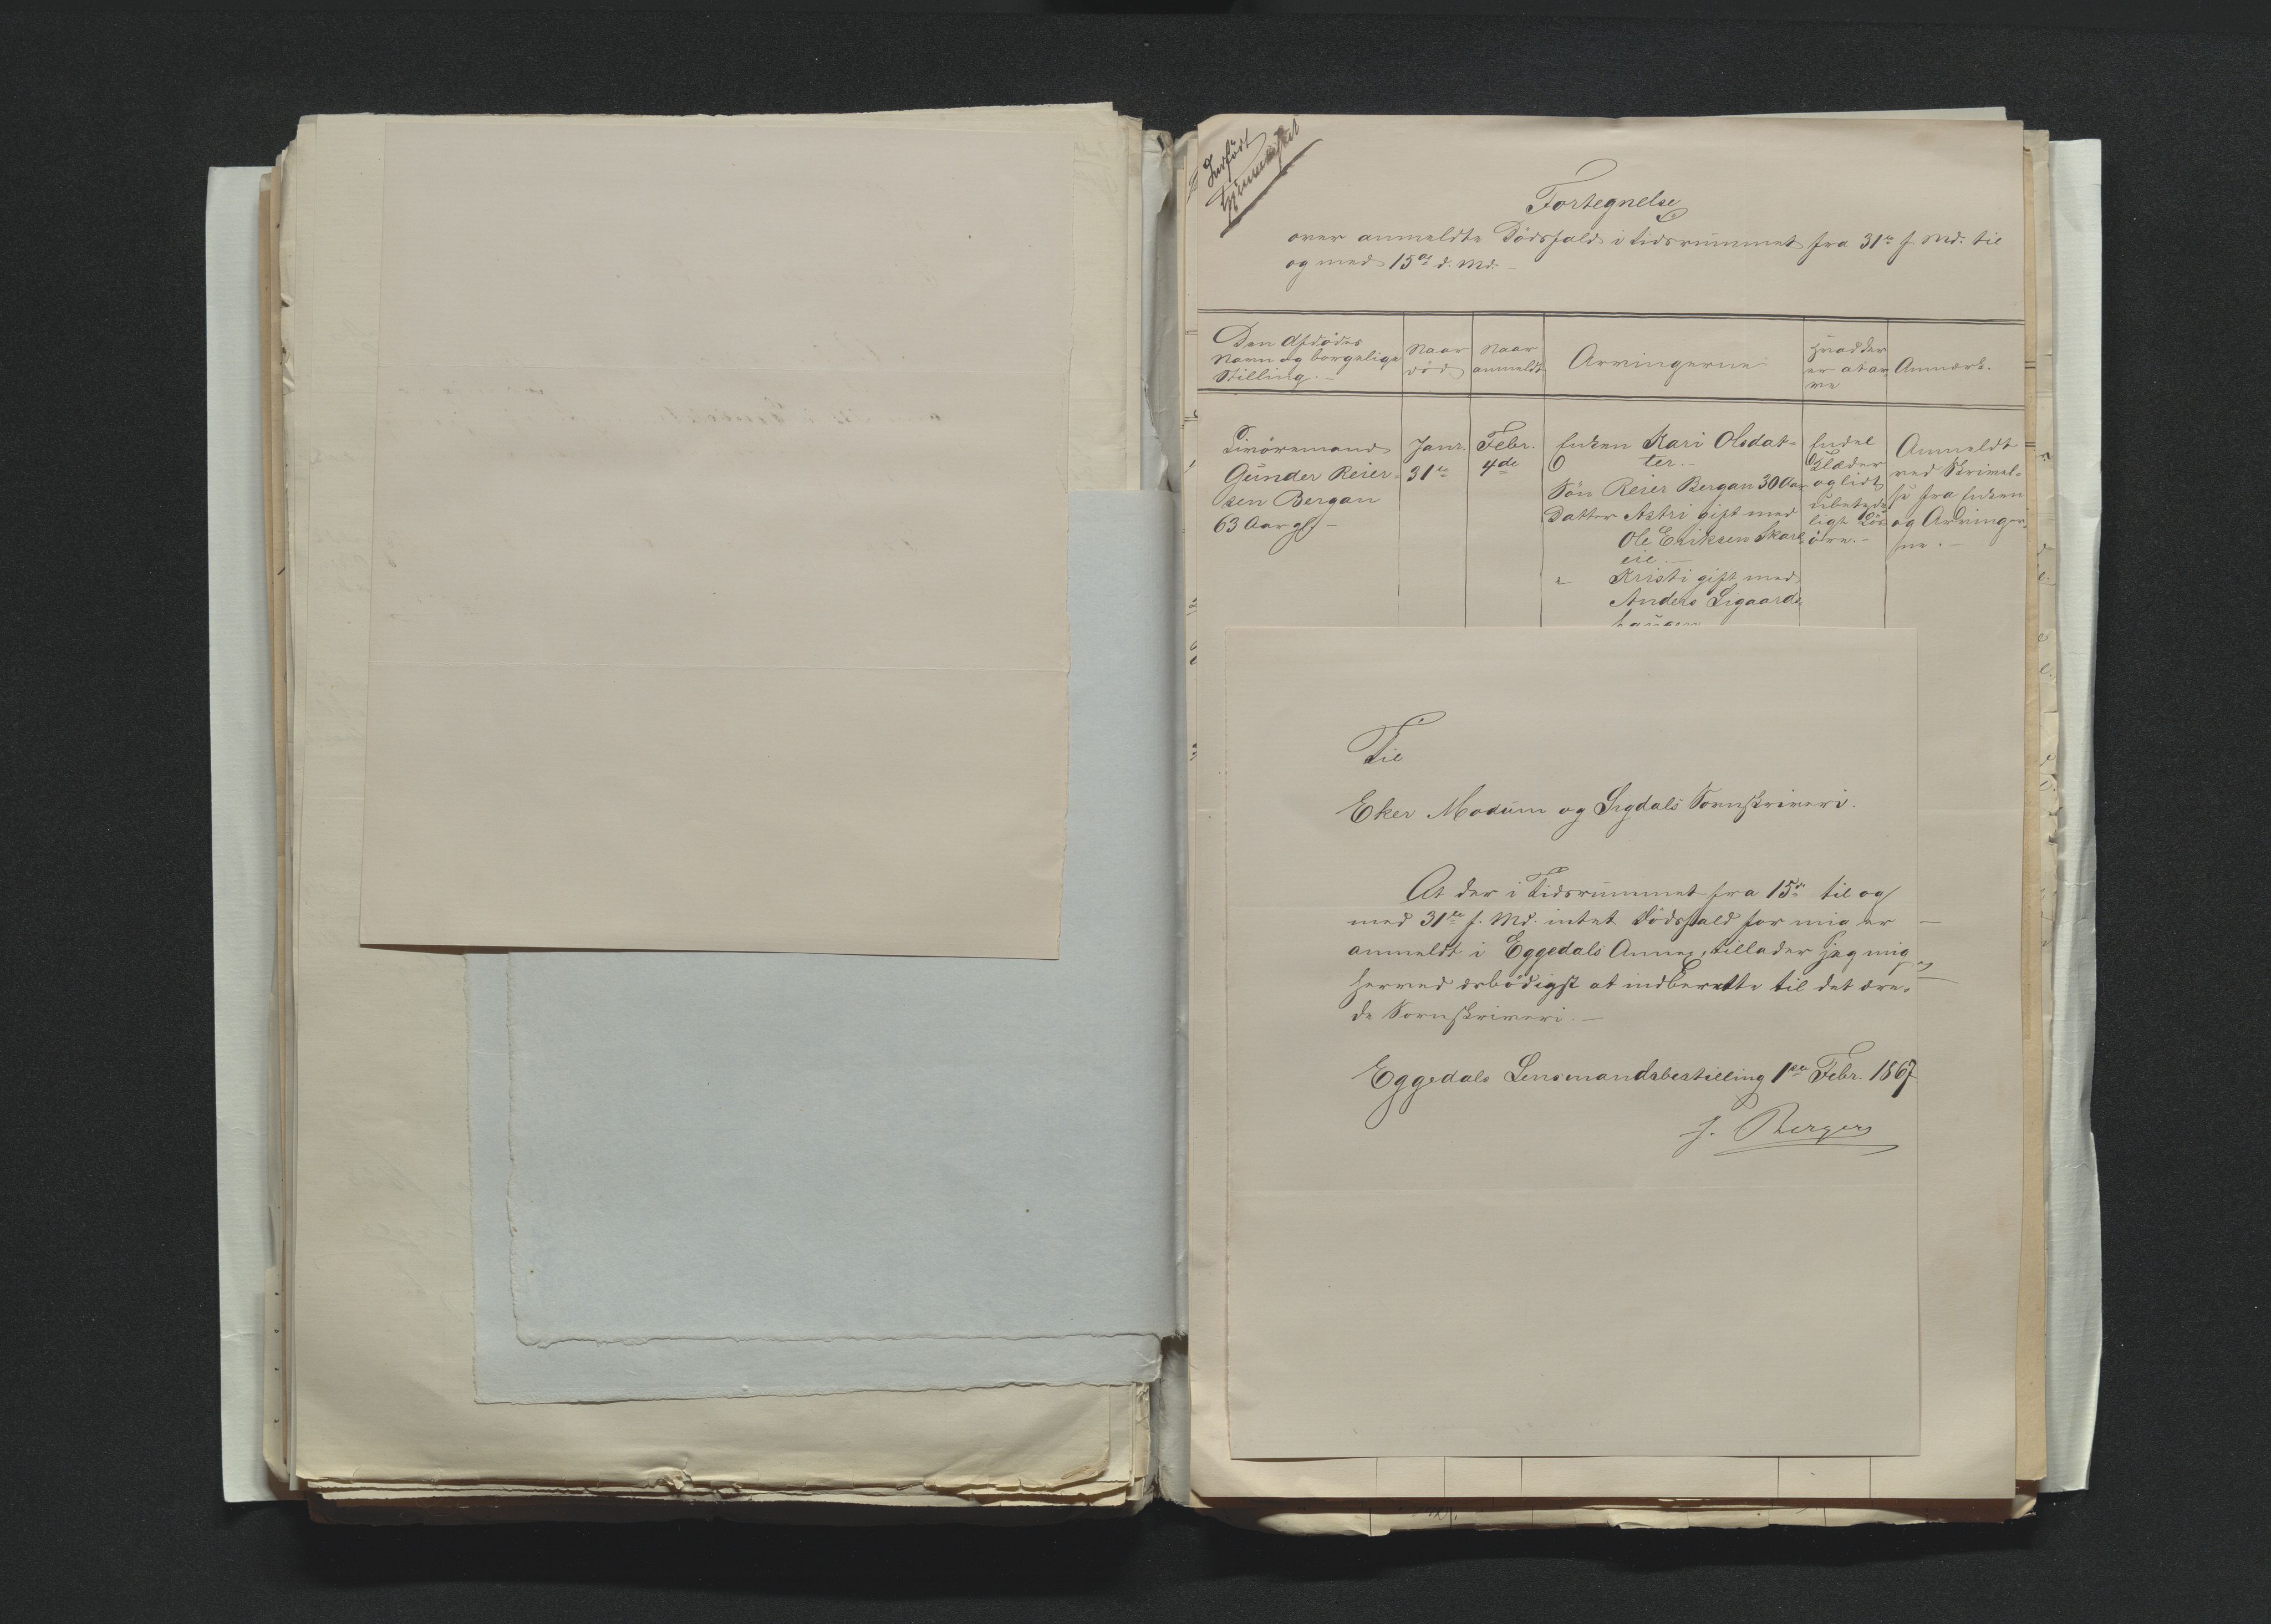 Indført
Fortegnelse
over anmeldte Dödsfald i tidsrummet fra 31te f. Md. til
og med 15de d. Md. –
Den Afdödes
Navn og borgelige
Stilling. –
Naar
död
Naar
anmeldt
Arvingerne
Hvad der
er at ar
ve
Anmærk.
Livöremand
Gunder Reier-
sen Bergan
63 Aar gl. –
Janr.
31te
Febr.
4de
Enken Kari Olsdat-
ter. –
Sön Reier Bergan 30 Aar
Datter Astri gift med
Ole Eriksen Skare
eie. –
" Kristi gift med
Anders Sigaards
haugen
Endel
Klæder
og lidt
ubetyde
ligt Lös-
öre. –
Anmeldt
ved Skrivel-
se fra Enken
og Arvinger-
ne. –
Til
Eker Modum og Sigdals Sorenskriveri.
At der i Tidsrummet fra 15de til og
med 31te f. Md. intet Dödsfald for mig er
anmeldt i Eggedals Annex, tillader jeg mig
herved ærbödigst at indberette til det ære-
de Sorenskriveri. –
Eggedals Lensmandsbestilling 1ste Febr. 1867
Berger